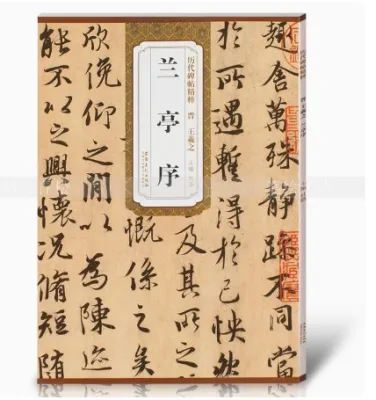 趣舍萬殊靜躁不同當
於所遇蹔得於己怏然
及其所之
慨係之矣
欣俛仰之閒以為陳迹
能不以之興懷況脩短隨
历代碑帖精粹 晋 王羲之
兰亭序
安徽美术出版社